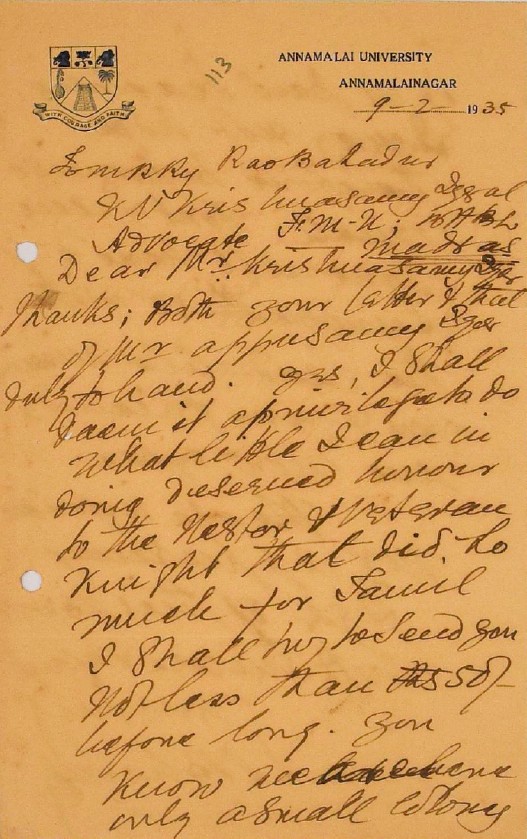 ANNAMALAI UNIVERSITY
ANNAMALAINAGAR
113
9-2-1935
WITH COURAGE AND FAITH
Rao Bahadur
K V Krishnasamy Iyer
Advocate Madras
Dear Mr. Krishnasamy Iyer
Thanks; Both your letter & that
of Mr Appusamy Iyer
duly to hand. Yes, I shall
deem it a privilege to do
what little I can in
doing deserved honour
to the Nestor & Veteran
Knight that did so
much for Tamil
I shall try to send you
not less than Rs 50/-
before long. You
know we have here
only a small colony